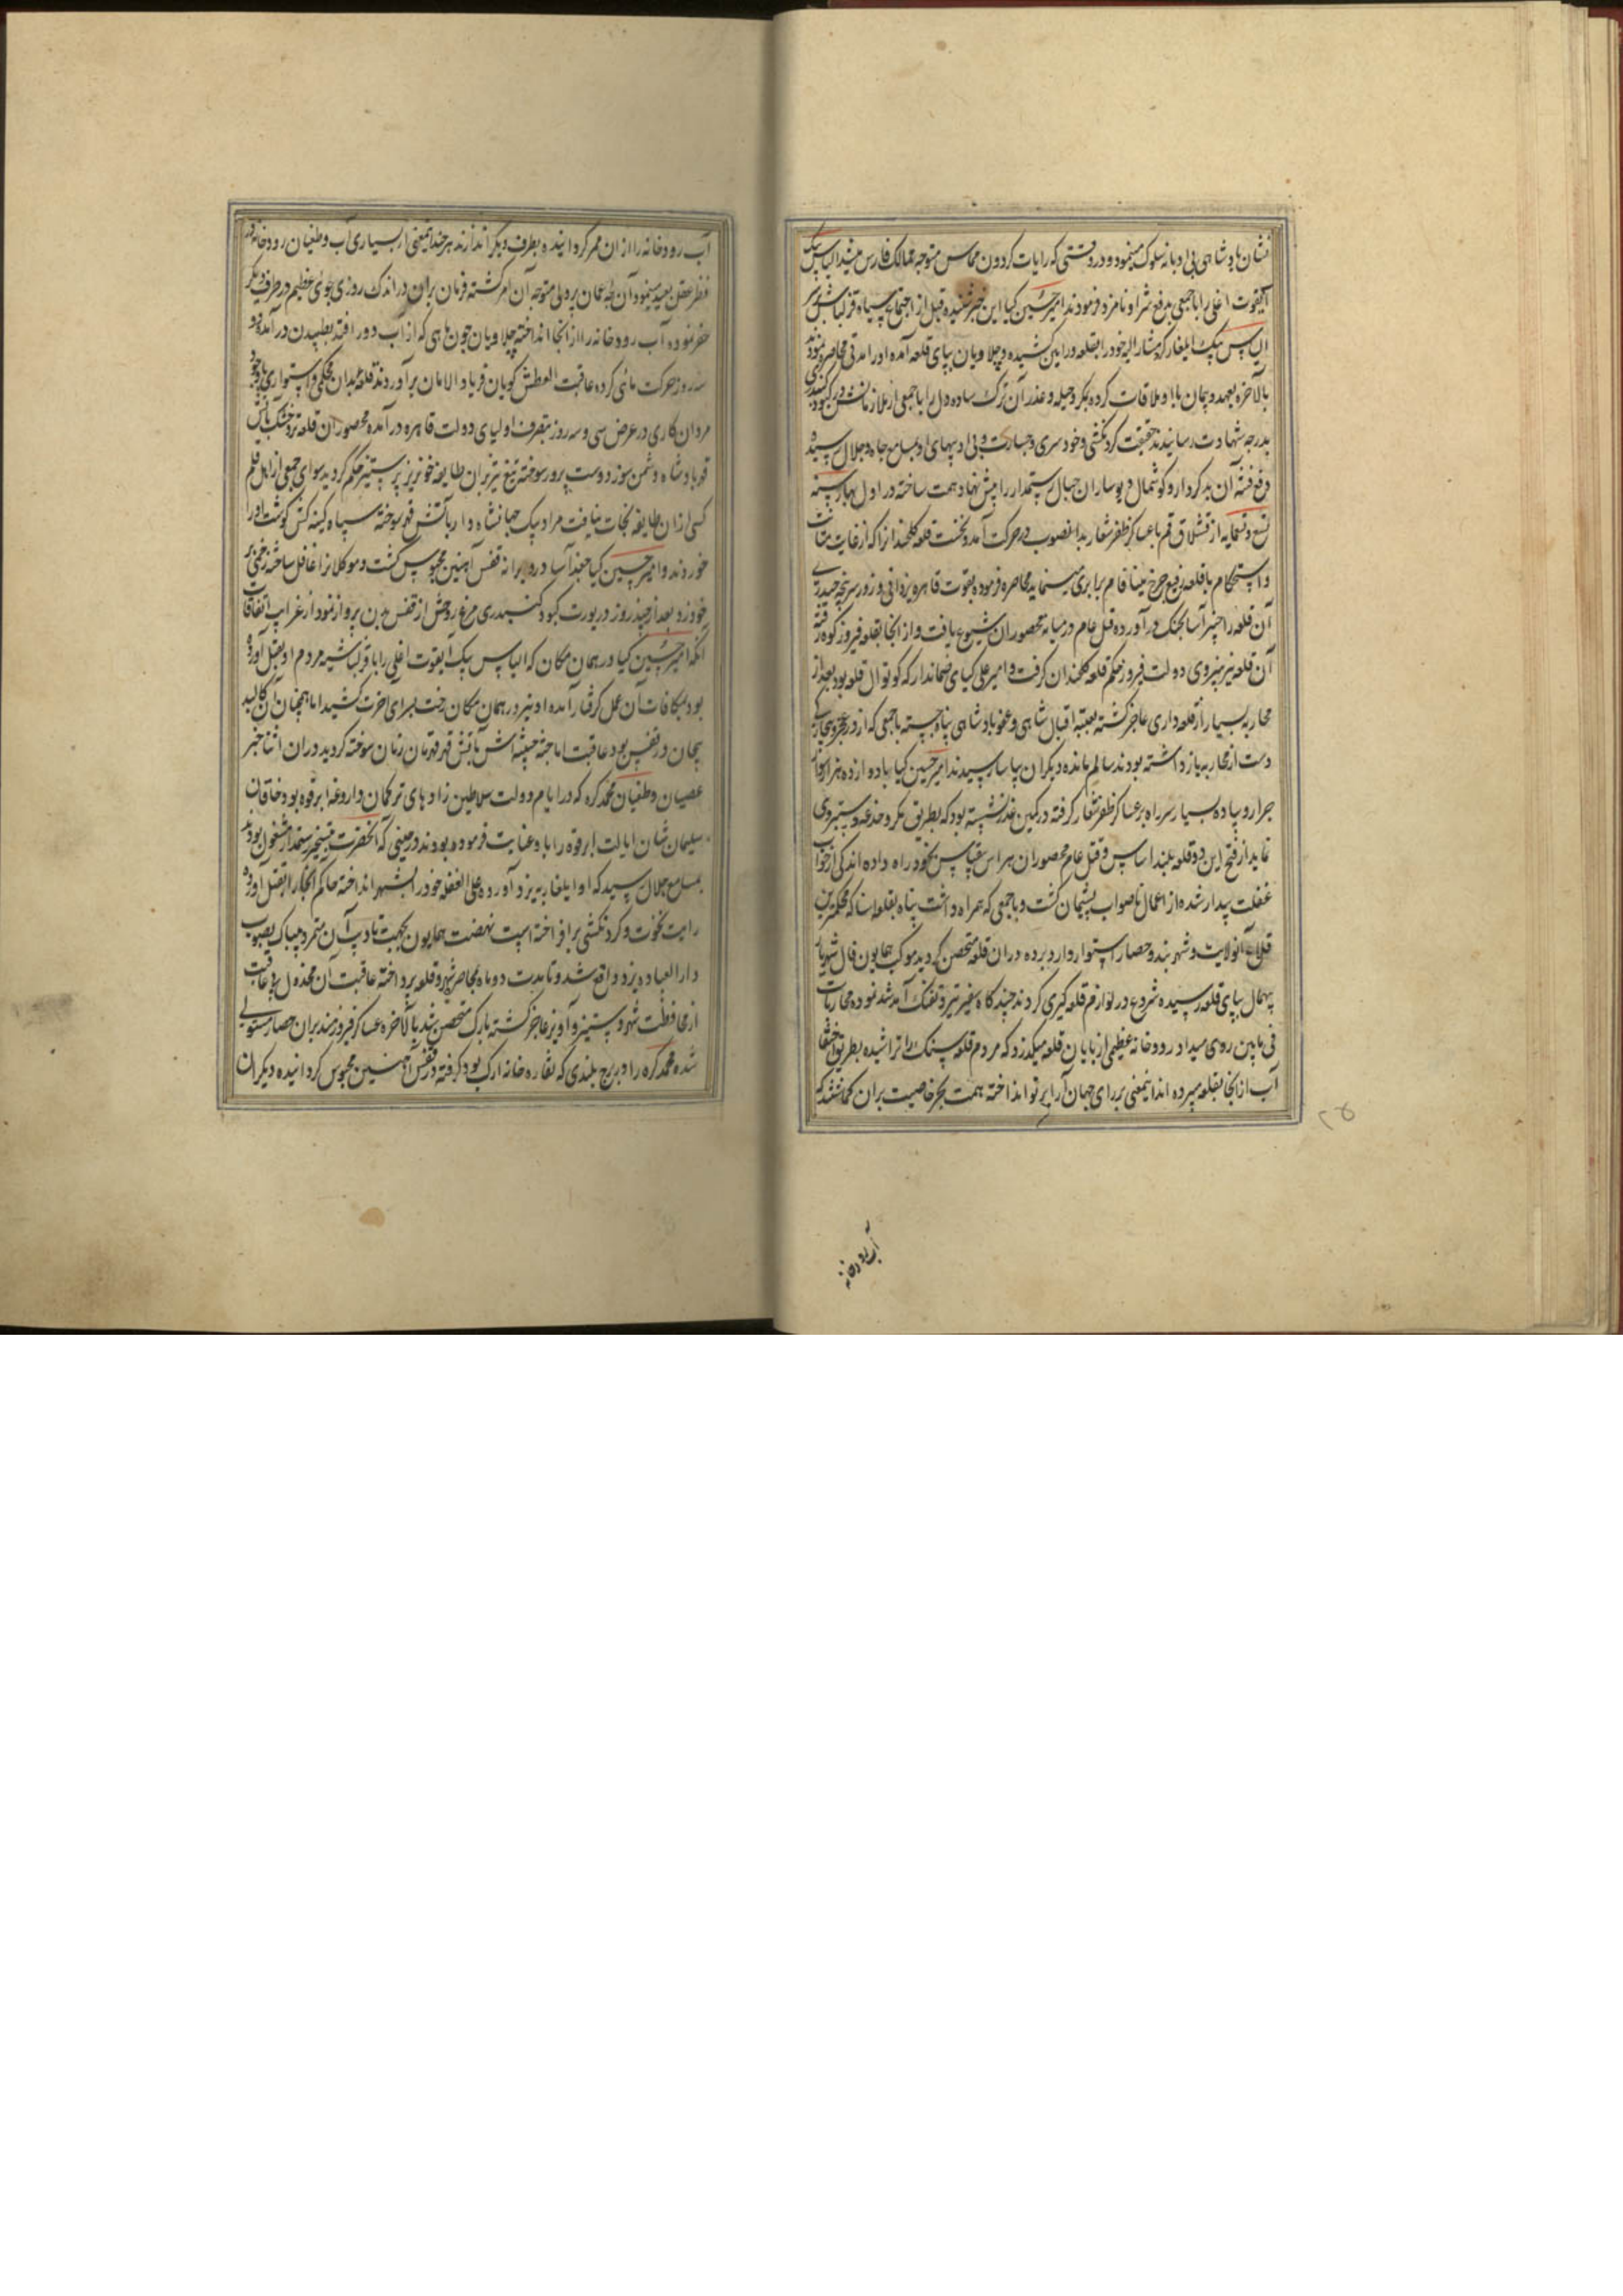 نشان پادشاهی بی ادبانه سلوک مینمود و در وقتی که رایات گردون مماس متوجه ممالک فارس میشد الیاس بیک
ایغوت اغلی را با جمعی بدفع شر او نامزد فرمودند امیر حسین کیا این خبر شنیده قبل از اجتماع سپاه قزلباش بر سر
الیاس بیک ایلغار کرد مشارالیه خود را بقلعه ورامین کشیده و چلاویان بپای قلعه آمده او را مدتی محاصره نمودند
بالاخره بعهد و پیمان با او ملاقات کرده بمکر و حیله و غدر آن ترک ساده دل را با جمعی از ملازمانش در کبود کنبدی
بدرجه شهادت رسانیدند حقیقت کردنکشی و خودسری و جسارت و بی ادبیهای او بمسامع جاه و جلال رسیده
دفع فتنه آن بدکردار و کوشمال دیوساران جبال رستمدار را پیش نهاد همت ساخته در اول بهار سنه
تسع و تسعمایه از قشلاق قم با عساکر ظفر شعار بدانصوب در حرکت آمد و نخست قلعه کلخندان را که از غایت متانت
و استحکام با قلعه رفیع چرخ مینافام برابری مینماید محاصره فرموده بقوت قاهره یزدانی و زور سرپنجه حیدری
آن قلعه را خیبر آسا بجنک در آورده قتل عام در میانه محصوران شیوع یافت و از انجا بقلعه فیروزکوه رفته
آن قلعه نیز بنیروی دولت فیروز حکم قلعه کلخندان کرفت و امیر علی کیای ضماندار که کوتوال قلعه بود بعد از
محاربه بسیار از قلعه داری عاجز کشته بعتبه اقبال شاهی و عفو پادشاهی پناه جسته با جمعی که از در عجز و بیچارکی
دست از محاربه باز داشته بودند سالم مانده دیکران بیاسا رسیدند امیر حسین کیا با ده دوازده هزار سوار
جرار و پیاده بسیار سر راه بر عساکر ظفر شعار کرفته در کمین غدر نشسته بود که بطریق مکر و خدعه دستبردی
نماید از فتح این دو قلعه بلند اساس و قتل عام محصوران هراس بیقیاس بخود راه داده اندکی از خواب
غفلت بیدار شده از اعمال ناصواب پشیمان کشت و با جمعی که همراه داشت پناه بقلعه استا که محکمترین
قلاع آنولایت و شهربند و حصار استوار دارد برده در آن قلعه متحصن کردید موکب همایون فال شهریار
بیهمال بپای قلعه رسیده شروع در لوازم قلعه کیری کردند چندکاه سفیر تیر و تفنک آمد شد نموده محاربات
فی مابین روی میداد رودخانه عظیمی از پایان قلعه میکذرد که مردم قلعه سنک را تراشیده بطریق اختفا
آب از انجا بقلعه میبرده اند اینمعنی بر رای جهان آرا پرتو انداخته همت بحر خاصیت بران کماشتند که
آب رودخانه
آب رودخانه را از ان ممر کردانیده بطرف دیکر اندازند هر چند اینمعنی از بسیاری آب و طغیان رودخانه در
نظر عقل بعید مینمود آن لجه عمان پردلی متوجه آن امر کشته فرمان بران در اندک روزی جوی عظیم در طرف دیکر
حفر نموده آب رودخانه را از انجا انداخته چلاویان چون ماهی که از آب دور افتد بطپیدن در آمده دو
سه روز حرکت مائی کرده عاقبت العطش کویان فریاد الامان برآوردند قلعه بدان محکمی و استواری باوجود
مردان کاری در عرض سی و سه روز بتصرف اولیای دولت قاهره در آمده محصوران قلعه تر و خشک بآتش
قهر پادشاه دشمن سوز دوست پرور سوخته تیغ تیز بران طایفه خونریز پر ستیز حکم کردید سوای جمعی از اهل قلم
کسی از ان طایفه نجات نیافت مراد بیک جهانشاه لو را بآتش قهر سوخته سپاه کینه کش کوشت او را
خوردند و امیر حسین کیا جغد آسا در ویرانه قفس آهنین محبوس کشت و موکلان را غافل ساخته زخمی بر
خود زد و بعد از چند روز در یورت کبود کنبدی مرغ روحش از قفس بدن پرواز نمود از غرایب اتفاقات
آنکه امیر حسین کیا در همان مکان که الیاس بیک ایغوت اغلی را با قزلباشیه مردم او بقتل آورده
بود بمکافات آن عمل کرفتار آمده او نیز در همان مکان رخت بسرای اخرت کشید اما همچنان آن کالبد
بیجان در قفس بود عاقبت اما جثه خبیثه اش بآتش قهر قهرمان زمان سوخته کردید در ان اثنا خبر
عصیان و طغیان محمد کره که در ایام دولت سلاطین زاده های ترکمان داروغه ابرقوه بود و خاقان
سلیمان شان ایالت ابرقوه را باو عنایت فرموده بودند در حینی که آنحضرت بتسخیر رستمدار مشغول بودند
بمسامع جلال رسید که او ایلغار به یزد آورده علی الغفله خود را بشهر انداخته حاکم آنجا را بقتل آورده
رایت نخوت و کردنکشی برافراخته است نهضت همایون بجهت تادیب آن متمرد بیباک بصوب
دارالعباده یزد واقع شد و تا مدت دو ماه بمحاصره شهر و قلعه پرداخته عاقبت آن مخذول بی عاقبت
از محافظت شهر و ستیز و آویز عاجز کشته بارک متحصن شد بالاخره عساکر فیروزمند بران حصار مستولی
شده محمد کره را در برج بلندی که نقاره خانه ارک بود کرفته در قفس آهنین محبوس کردانیده دیکران